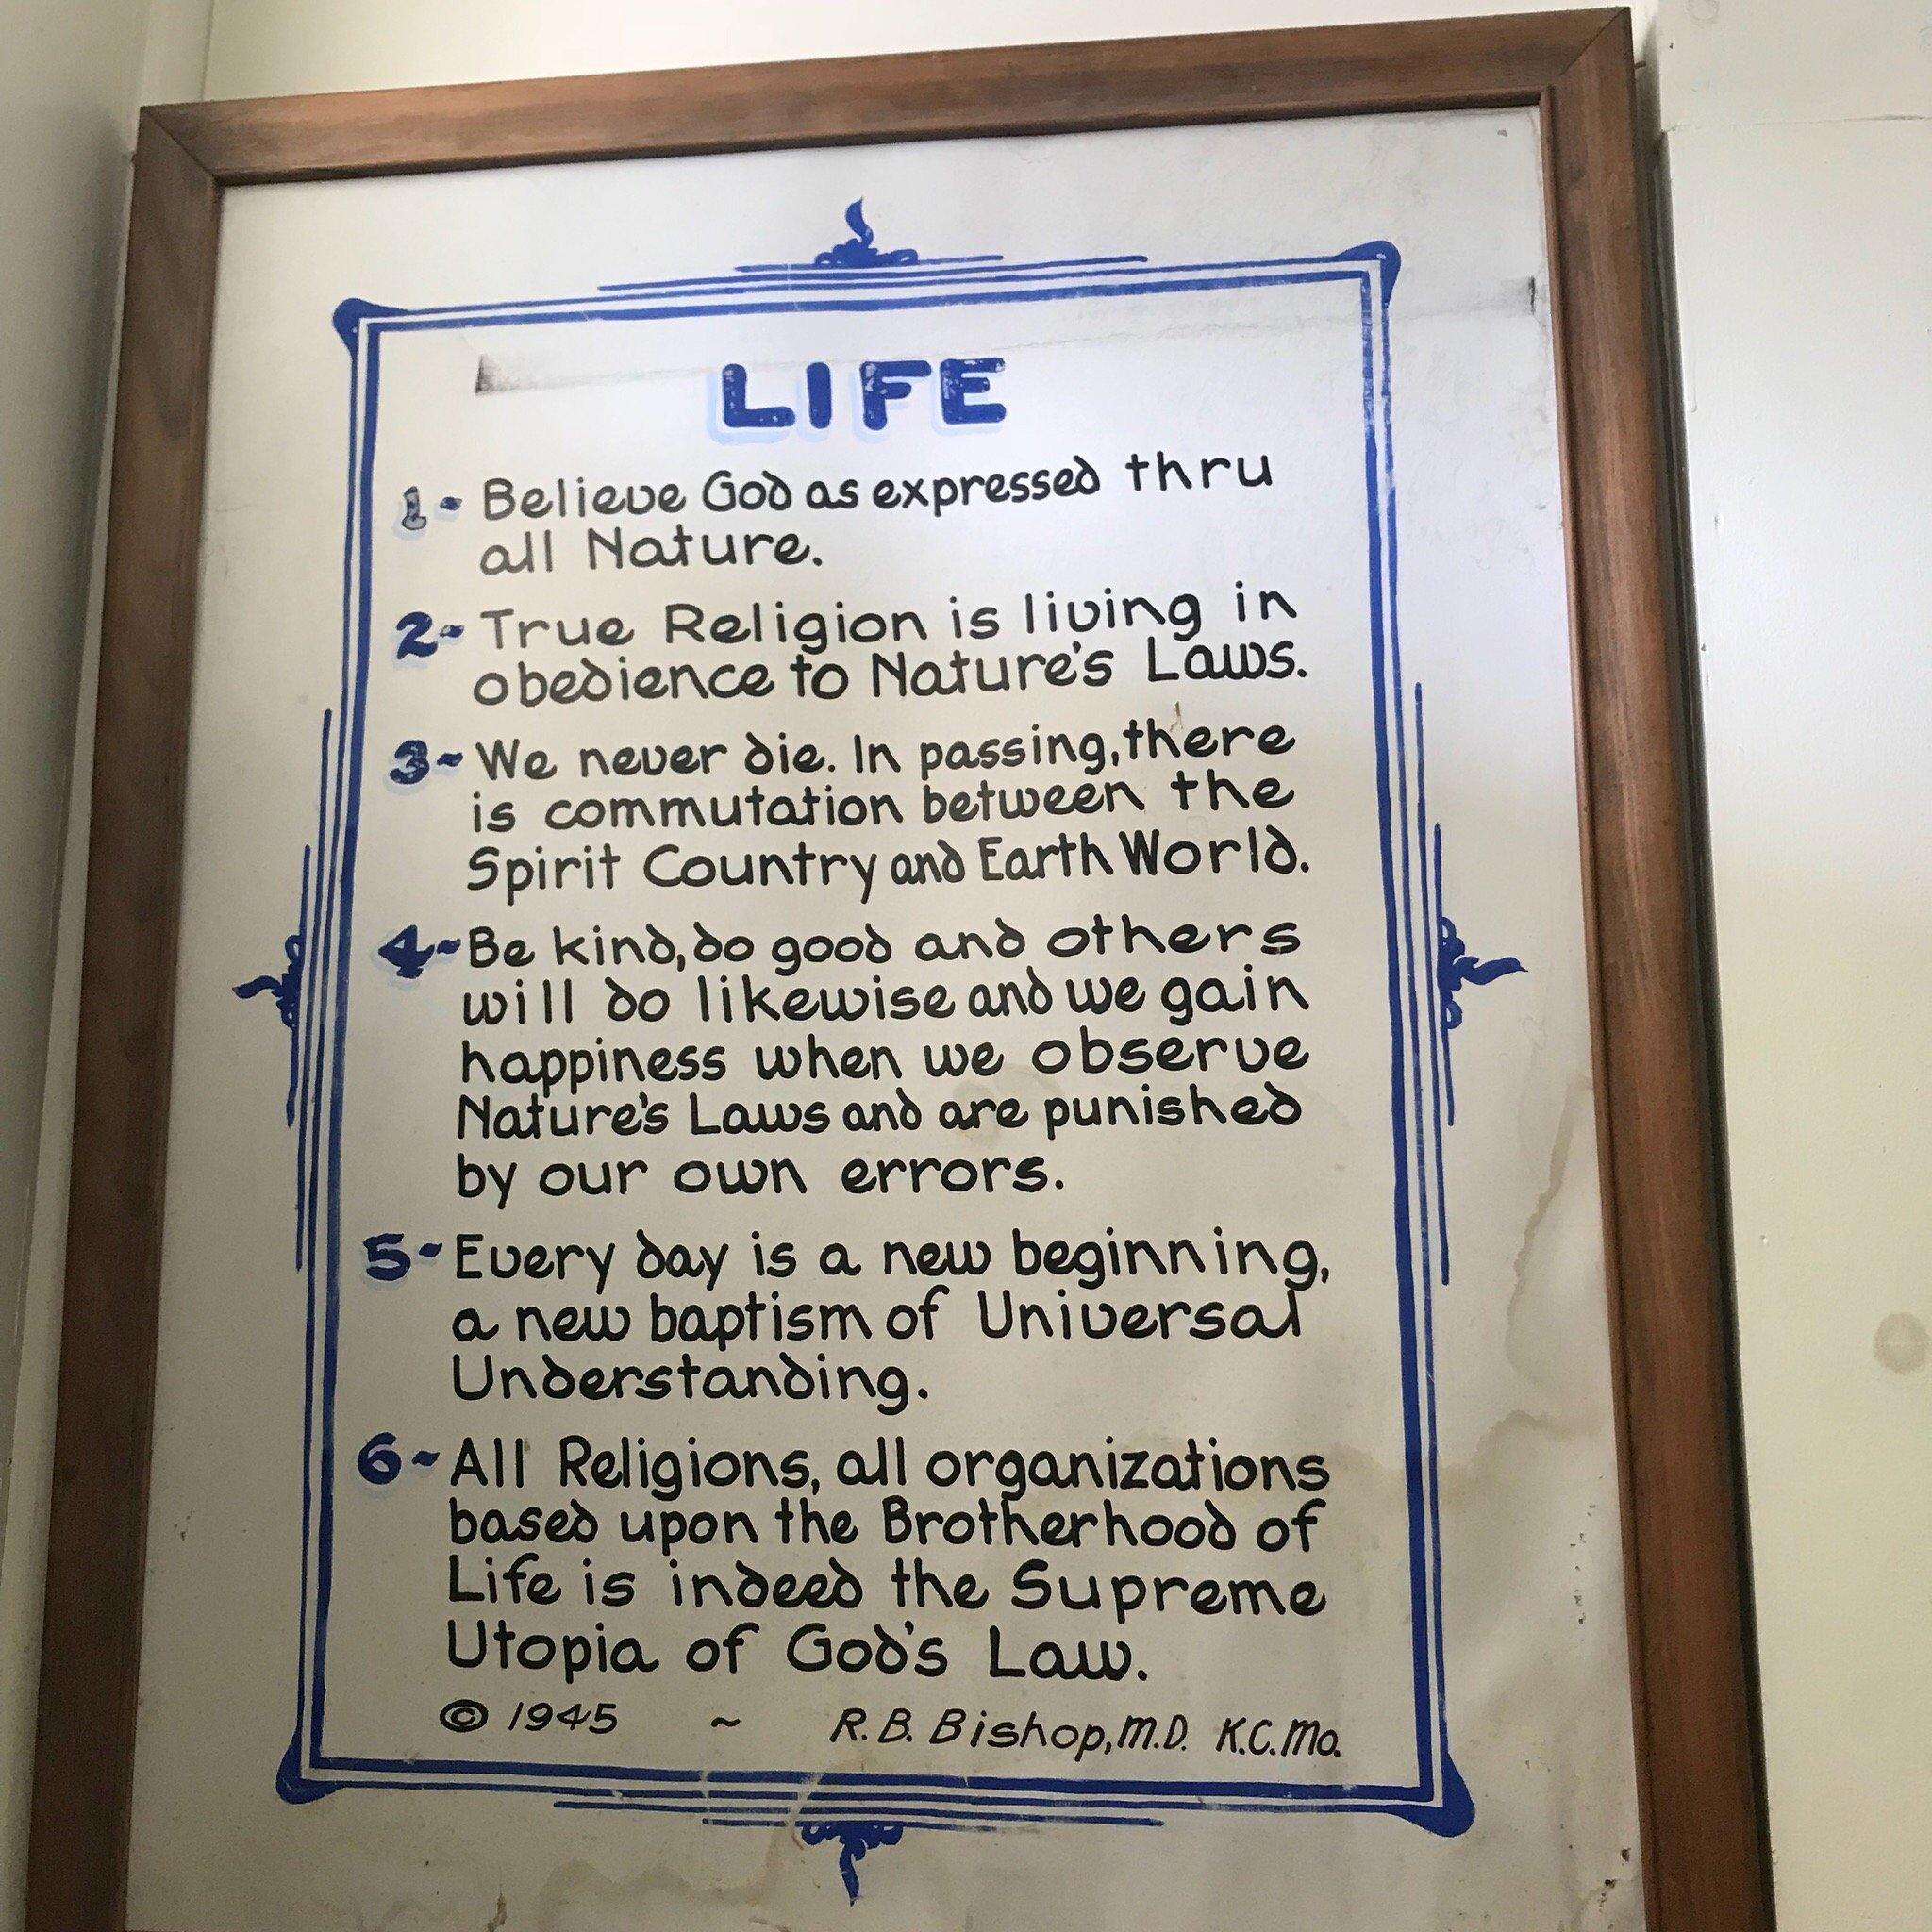 LIFE
1- Believe God as expressed thru
all Nature.
2~ True Religion is living in
obedience to Nature's Laws.
3~ We never die. In passing, there
is commutation between the
Spirit Country and Earth World.
4~ Be kind, do good and others
will do likewise and we gain
happiness when we observe
Nature's Laws and are punished
by our own errors.
5~ Every day is a new beginning,
a new baptism of Universal
Understanding.
6~ All Religions, all organizations
based upon the Brotherhood of
Life is indeed the Supreme
Utopia of God's Law.
© 1945 ~ R.B. Bishop, M.D. K.C. Mo.